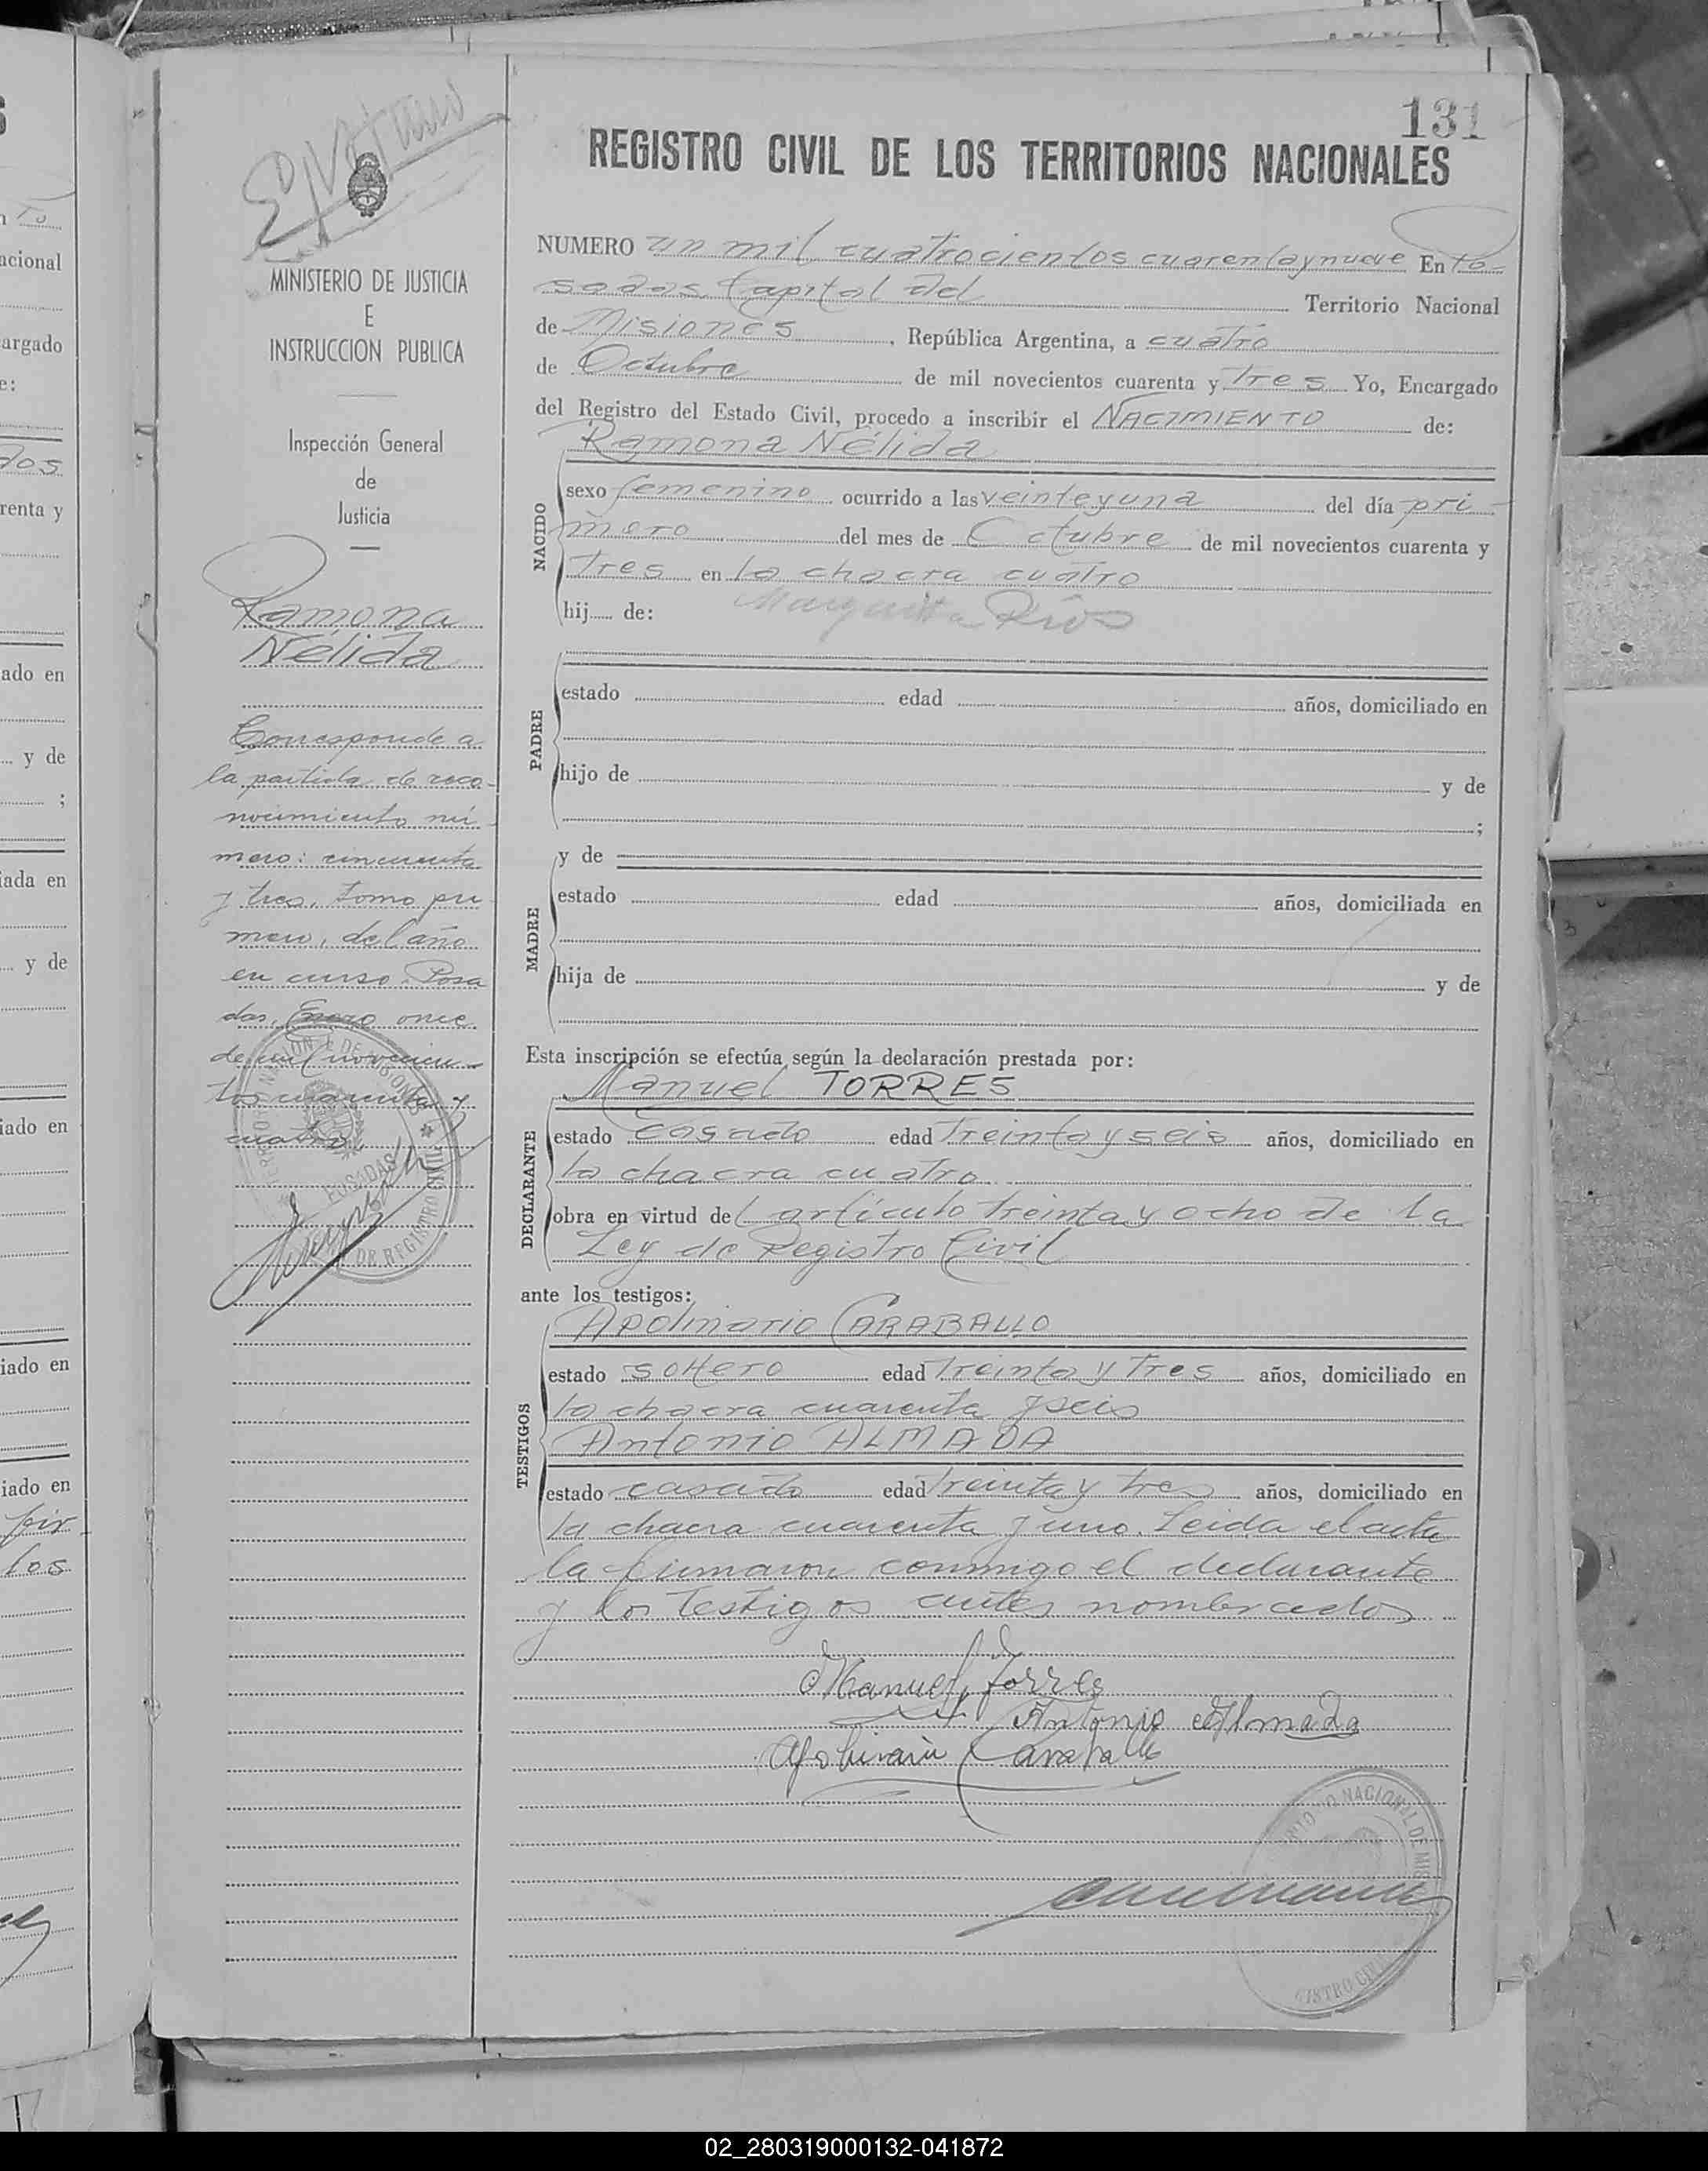 131
REGISTRO CIVIL DE LOS TERRITORIOS NACIONALES
NUMERO un mil cuatrocientos cuarenta y nueve En Po-
sadas Capital del Territorio Nacional
de Misiones, República Argentina, a cuatro
de Octubre de mil novecientos cuarenta y Tres Yo, Encargado
del Registro del Estado Civil, procedo a inscribir el NACIMIENTO de:
Ramona Nélida
NACIDO
sexo femenino ocurrido a las veinte y una del día pri-
mero del mes de Octubre de mil novecientos cuarenta y
Tres en la chacra cuatro
hij de: Margarita Ríos
PADRE
estado edad años, domiciliado en
hijo de y de
;
y de
MADRE
estado edad años, domiciliada en
hija de y de
Esta inscripción se efectúa según la declaración prestada por:
Manuel TORRES
DECLARANTE
estado casado edad treinta y seis años, domiciliado en
la chacra cuatro
obra en virtud del artículo treinta y ocho de la
Ley de Registro Civil
ante los testigos:
Apolinario CARABALLO
TESTIGOS
estado soltero edad treinta y tres años, domiciliado en
la chacra cuarenta y seis
Antonio ALMADA
estado casado edad treinta y tres años, domiciliado en
la chacra cuarenta y uno. Leida el acta
la firmaron conmigo el declarante
y los testigos antes nombrados
Manuel Torres
Antonio Almada
Apolinario Caraballo
MINISTERIO DE JUSTICIA
E
INSTRUCCION PUBLICA
Inspección General
de
Justicia
Ramona
Nélida
Corresponde a
la partida de reco-
nocimiento nú-
mero: cincuenta
y tres, tomo pri
mero, del año
en curso. Posa
das, Enero once
de mil novecien-
tos cuarenta y
cuatro.
POSADAS
02_280319000132-041872